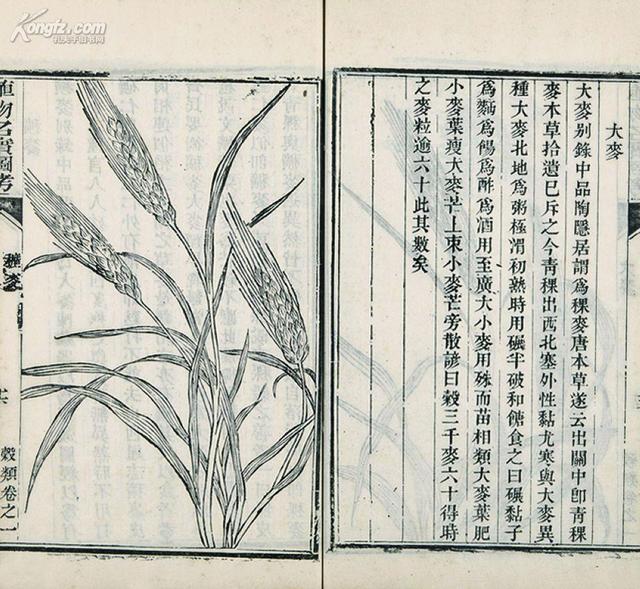 大麥
大麥别錄中品陶隱居謂為稞麥唐本草遂云出關中卽青稞
麥本草拾遺已斥之今青稞出西北塞外性黏尤寒與大麥異
種大麥北地為粥極滑初熟時用碾半破和餹食之曰碾黏子
為麵為餳為酢為酒用至廣大小麥用殊而苗相類大麥葉肥
小麥葉瘦大麥芒上束小麥芒旁散諺曰穀三千麥六十得時
之麥粒逾六十此其數矣
植物名實圖考
穬麥
穀類卷之一
Kongfz.com
孔夫子旧书网